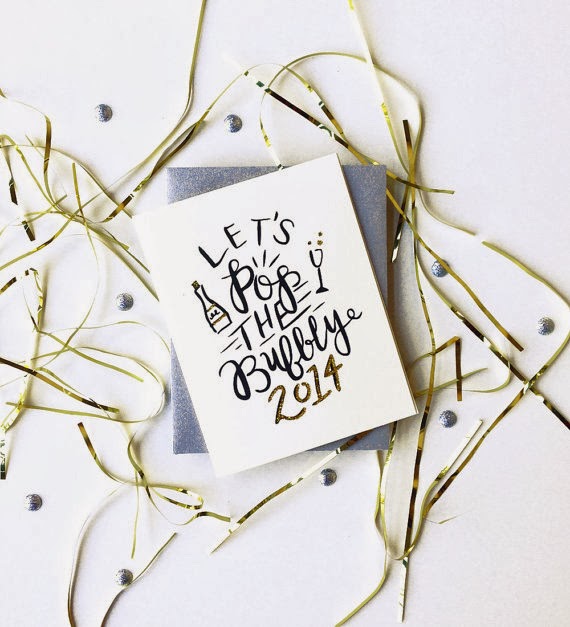 LET'S
Pop
THE
Bubbly
2014